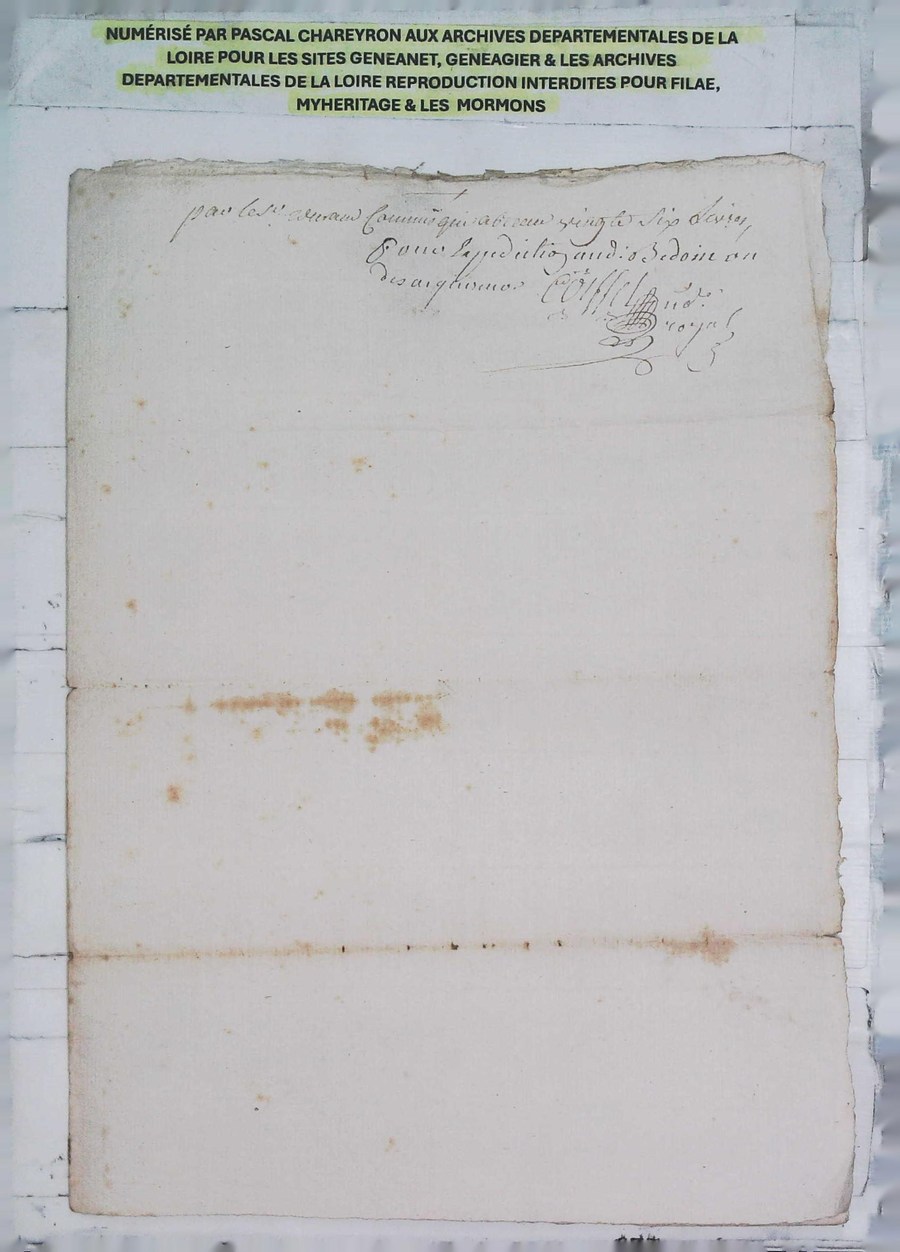 NUMÉRISÉ PAR PASCAL CHAREYRON AUX ARCHIVES DEPARTEMENTALES DE LA
LOIRE POUR LES SITES GENEANET, GENEAGIER & LES ARCHIVES
DEPARTEMENTALES DE LA LOIRE REPRODUCTION INTERDITES POUR FILAE,
MYHERITAGE & LES MORMONS
par le Sr Commis qui a receu vingte six Livres,
Pour Expedition audit Bedoin
des acquereurs
royal